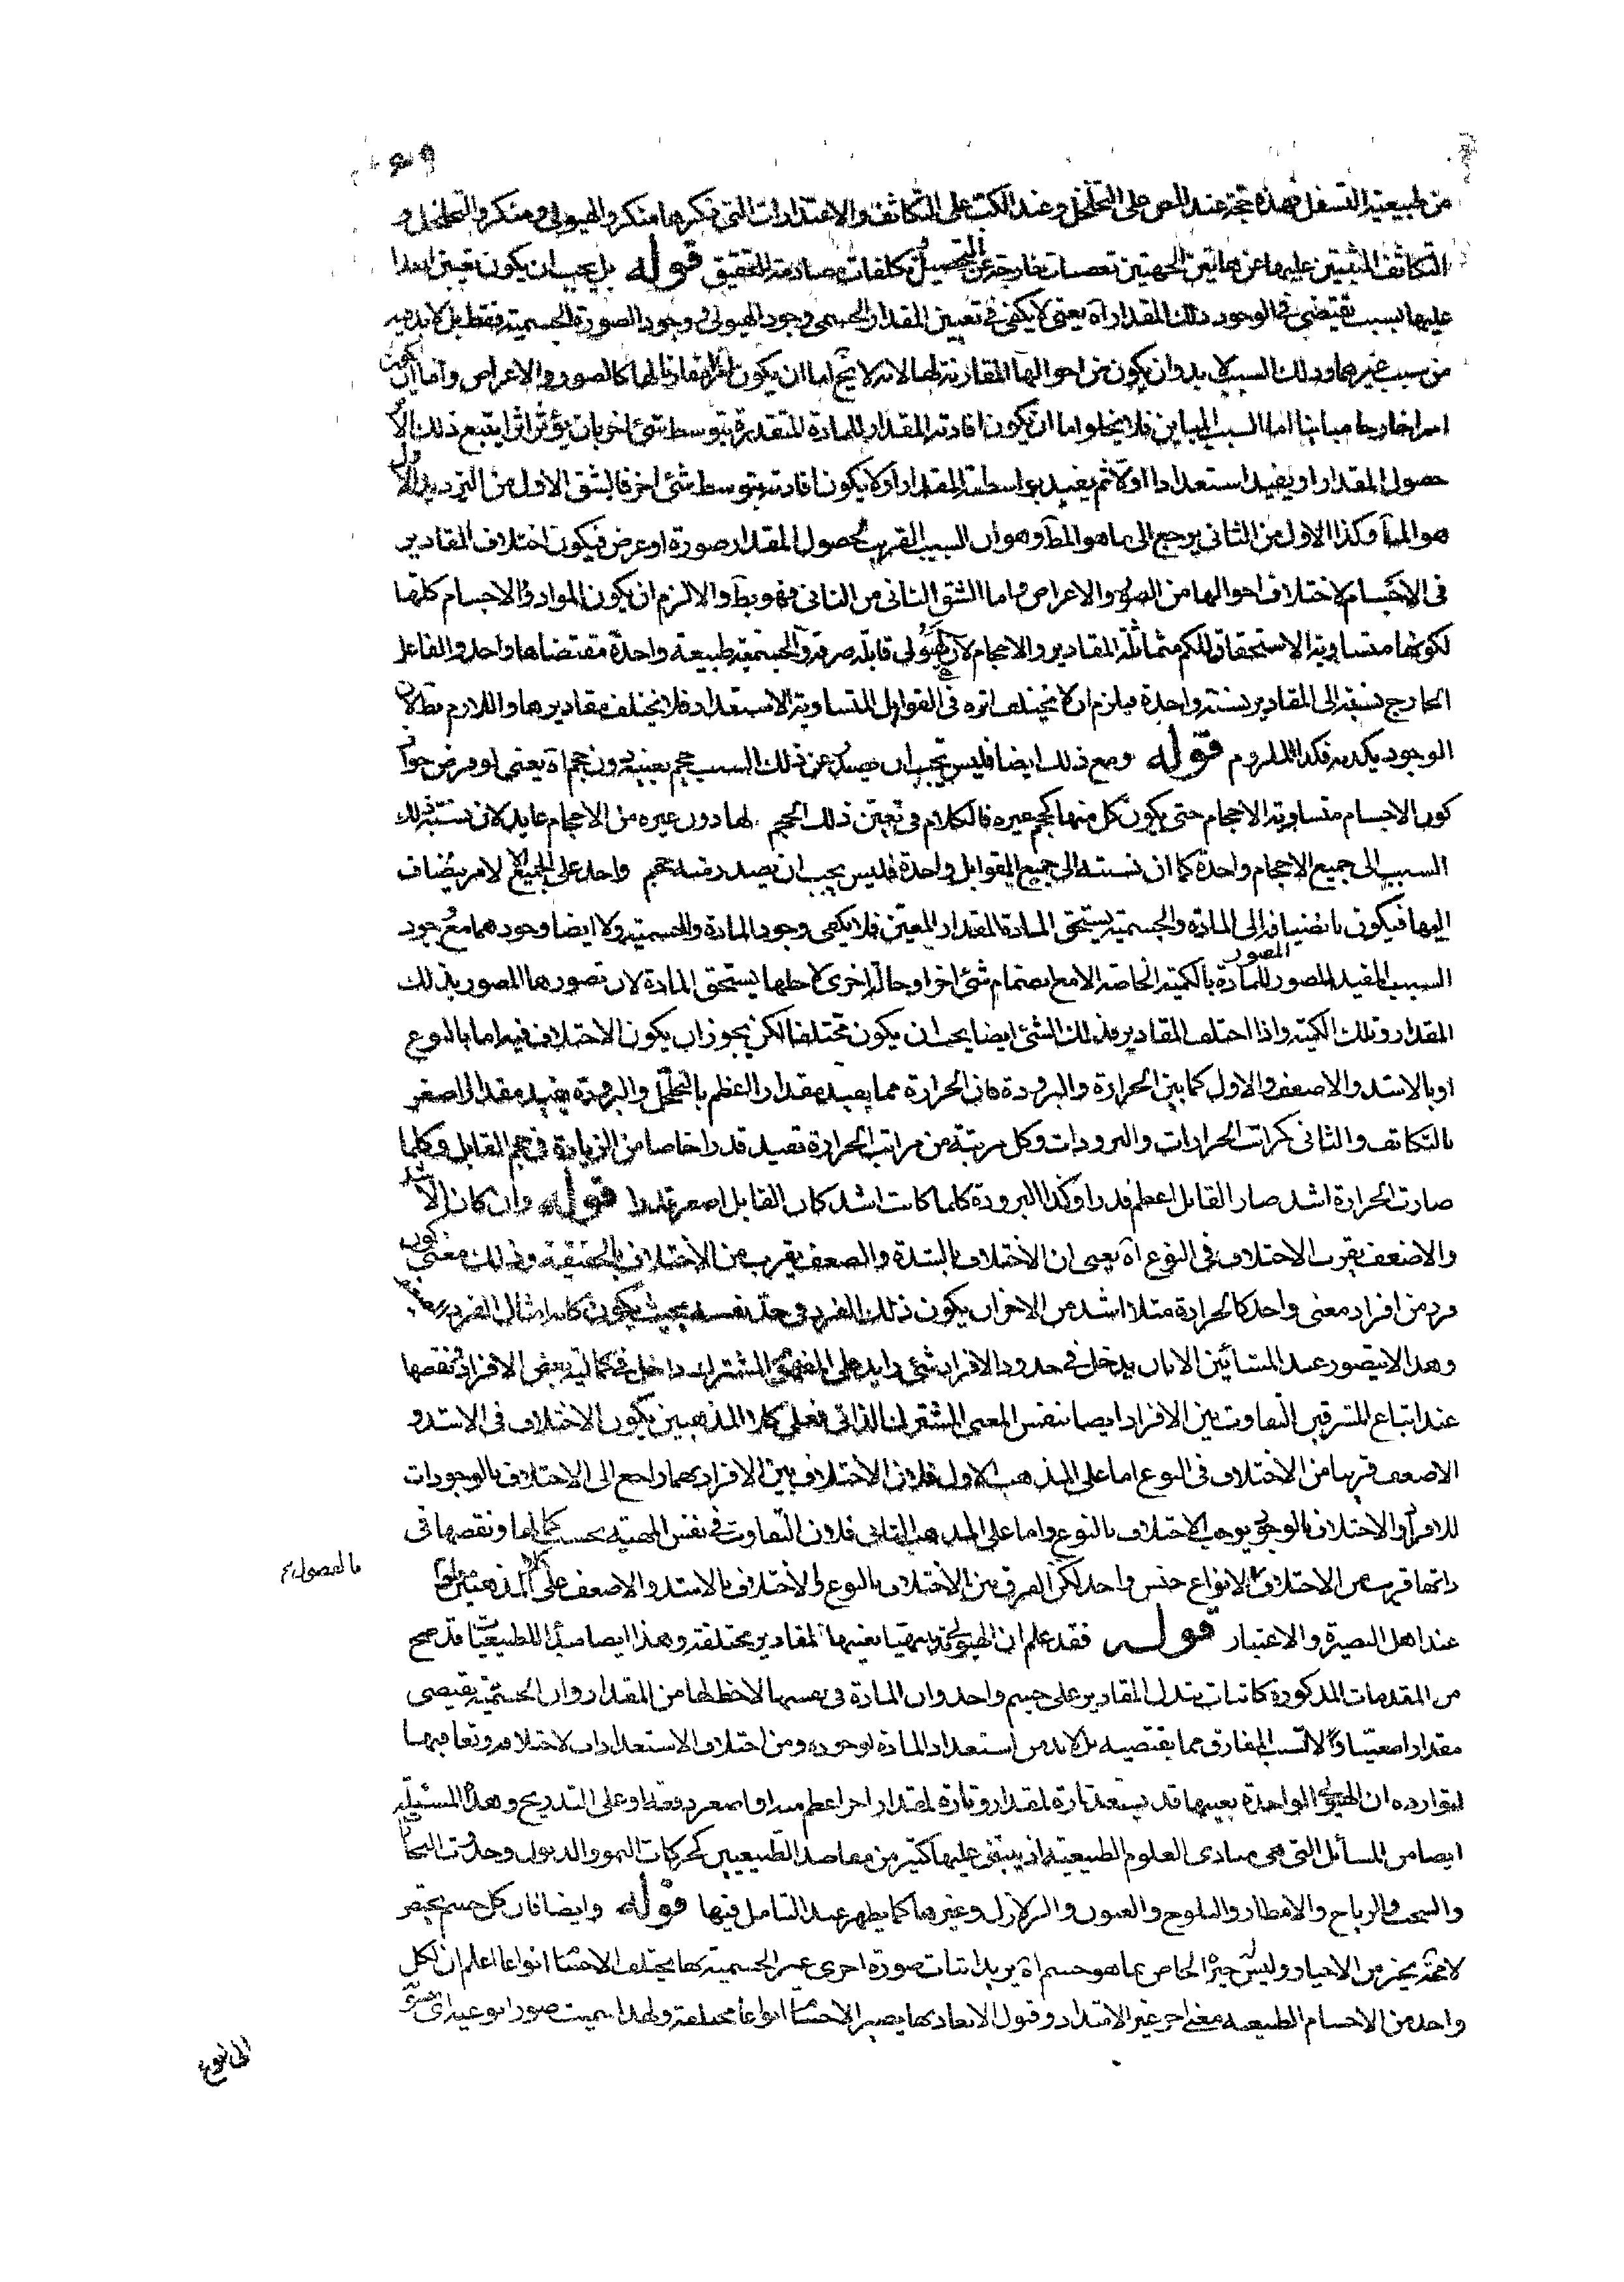 من طبيعته التسفل فهذه حجة عند المص على التخلخل وعند الكب على التكاثف والاعتذارات التى ذكرها منكروا الهيولى ومنكروا التخلخل و
التكاثف المثبتين عليها عن هاتين الحجتين تعصبات خارجة عن التحصيل وتكلفات مصادمة للتحقيق قوله بل يجب ان يكون تعين
عليها بسبب يقتضى فى الوجود ذلك المقدار آه يعنى لا يكفى فى تعيين المقدار الجسمى وجود الهيولى ووجود الصورة الجسمية فقط بل لا بد فيه
من سبب غيرهما وذلك السبب لا بد وان يكون من احوالها المقارنة لها لانه لا يخ اما ان يكون امرا مقارنا لها كالصور والاعراض واما ان يكون
امرا خارجا مباينا اما السبب المباين فلا يخلو اما ان يكون افادته المقدار للمادة المتقدرة بتوسط شئ اخر بان يؤثر اثرا يتبع ذلك الاثر
حصول المقدار او يفيد استعدادا اولا ثم يفيد بواسطته المقدار او لا يكون افادته بتوسط شئ اخر فالشق الاول من الترديد الاول
هو المط وكذا الاول من الثانى يرجع الى ما هو المط وهو ان السبب القريب لحصول المقدار صورة او عرض فيكون اختلاف المقادير
فى الاجسام لاختلاف احوالها من الصور والاعراض واما الشق الثانى من الثانى فهو بط والا لزم ان يكون المواد والاجسام كلها
لكونها متساوية الاستحقاق للكم متماثلة المقادير والاحجام لان الهيولى قابلة صرفة والجسمية طبيعة واحدة مقتضاها واحد والفاعل
الخارج نسبته الى المقادير نسبة واحدة فيلزم ان لا يختلف اثره فى القوابل المتساوية الاستعداد فلا يختلف مقاديرها واللازم بطلان
الوجود يكذبه فكذا الملزوم قوله ومع ذلك ايضا فليس يجب ان يصدر عن ذلك السبب حجم بعينه دون حجم آه يعنى لو فرض جواز
كون الاجسام متساوية الاحجام حتى يكون كل منها كحجم غيره فالكلام فى تعين ذلك الحجم لها دون غيره من الاحجام عايد لان نسبة ذلك
السبب الى جميع الاحجام واحدة كما ان نسبته الى جميع القوابل واحدة فليس يجب ان يصدر منه حجم واحد على الجميع الا لامر يضاف
اليها فيكون بانضيافه الى المادة والجسمية يستحق المادة المقدار المعين فلا يكفى وجود المادة والجسمية ولا ايضا وجودهما مع وجود
المصور
السبب المفيد المصور للمادة بالكمية الخاصة الا مع انضمام شئ اخر او حالة اخرى لاجلها يستحق المادة لان تصورها المصور بذلك
المقدار وتلك الكمية واذا اختلف المقادير فذلك الشئ ايضا يجب ان يكون مختلفا لكن يجوز ان يكون الاختلاف فيه اما بالنوع
او بالاشد والاضعف والاول كما بين الحرارة والبرودة فان الحرارة مما يفيد مقدارا اعظم بالتخلخل والبرودة يفيد مقدارا اصغر
بالتكاثف والثانى كمراتب الحرارات والبرودات وكل مرتبة من مراتب الحرارة تفيد قدرا خاصا من الزيادة فى حجم القابل وكلما
صارت الحرارة اشد صار القابل اعظم قدرا وكذا البرودة كلما كانت اشد كان القابل اصغر قدرا قوله وان كان الاشد
والاضعف يقرب الاختلاف فى النوع آه يعنى ان الاختلاف بالشدة والضعف يقرب من الاختلاف بالحقيقة وذلك معنى كون
فرد من افراد معنى واحد كالحرارة مثلا اشد من الاخر ان يكون ذلك الفرد فى حد نفسه بحيث يكون كانه امثال الفرد
وهذا لا يتصور عند المشائين الا بان يدخل فى حدود الافراد شئ زايد على المفهوم المشترك داخل فى كمالية بعض الافراد ونقصها
عند اتباع المشرقين التفاوت بين الافراد ايضا بنفس المعنى المشترك الذاتى فعلى كلا المذهبين يكون الاختلاف فى الاشد و
الاضعف قريبا من الاختلاف فى النوع اما على المذهب الاول فلان الاختلاف بين الافراد بهما راجع الى الاختلاف بالوجودات
للافراد والاختلاف بالوجود يوجب الاختلاف بالنوع واما على المذهب الثانى فلان التفاوت فى نفس المهية بحسب كمالها ونقصها فى
ذاتها قريب من الاختلاف الانواع جنس واحد لكن الفرق بين الاختلاف بالنوع والاختلاف بالاشد والاضعف على كلا المذهبين
بالفصول
عند اهل البصيرة والاعتبار قوله فقد علم ان الهيولى قد يتهيأ بعينها لمقادير مختلفة وهذا ايضا مبدأ للطبيعيات قد صح
من المقدمات المذكورة كاثبات تبدل المقادير على جسم واحد وان المادة فى نفسها لا حظ لها من المقدار وان الجسمية يقتضى
مقدارا معينا ولا السبب المفارق مما يقتضيه بل لا بد من استعداد المادة لوجوده ومن اختلاف الاستعدادات لاختلافه وتعاقبها
لتوارده ان الهيولى الواحدة بعينها قد يستعد تارة لمقدار وتارة لمقدار اخر اعظم منه او اصغر دفعة او على التدريج وهذا المسئلة
ايضا من المسائل التى هى مبادى العلوم الطبيعية اذ يبتنى عليها كثير من مقاصد الطبيعيين كحركات النمو والذبول وحدوث البخار
والسحب والرياح والامطار والثلوج والعيون والزلازل وغيرها كما يظهر عند التامل فيها قوله وايضا فان كل جسم يختص
لا محة بحيز من الاحياز وليس حيزه الخاص بما هو جسم آه يريد اثبات صورة اخرى غير الجسمية بها يختلف الاجسام انواعا اعلم ان لكل
واحد من الاجسام الطبيعيه معنى اخر غير الامتداد وقبول الابعاد بها يصير الاجسام انواعا مختلفة ولهذا سميت صورا نوعية اى